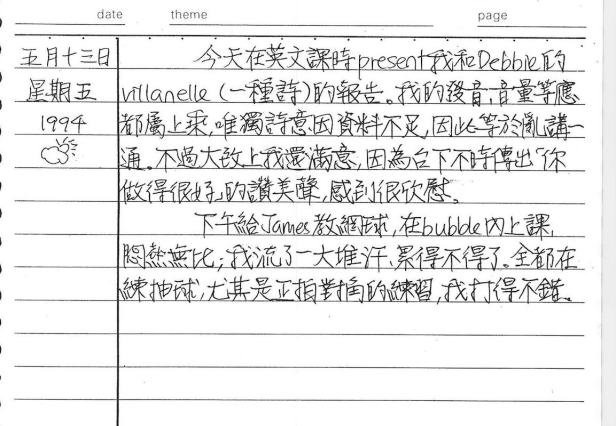 date theme page
五月十三日
星期五
1994
今天在英文課時present我和Debbie的
villanelle(一種詩)的報告。我的發音,音量等應
都屬上乘,唯獨詩意因資料不足,因此等於亂講一
通。不過大致上我還滿意,因為台下不時傳出「你
做得很好」的讚美聲,感到很欣慰。
下午給James教網球,在bubble內上課,
悶熱無比;我流了一大堆汗、累得不得了。全都在
練抽球,尤其是正拍對角的練習,我打得不錯。